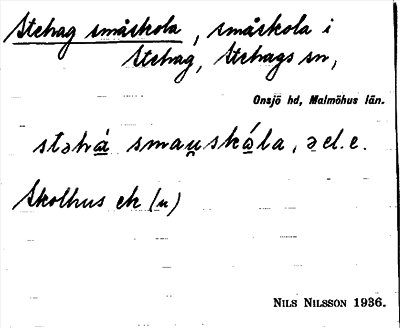 Stehag småskola, småskola i
Stehag, Stehags sn,
Onsjö hd, Malmöhus län.
stəhá smau̯skála, əel.e.
Skolhus ek (u)
NILS NILSSON 1936.